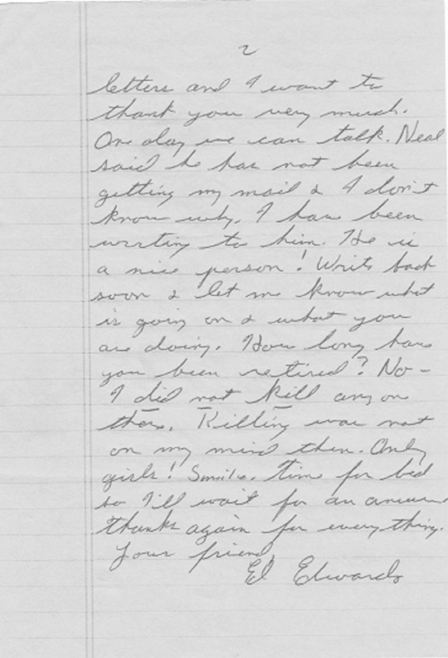 2
letters and I want to
thank you very much.
One day we can talk. Neal
said he has not been
getting my mail & I don't
know why. I have been
writing to him. He is
a nice person! Write back
soon & let me know what
is going on & what you
are doing. How long have
you been retired? No -
I did not kill any one
there. Killing was not
on my mind then. Only
girls! Smile. Time for bed
so I'll wait for an answer
thanks again for everything.
Your friend
Ed Edwards